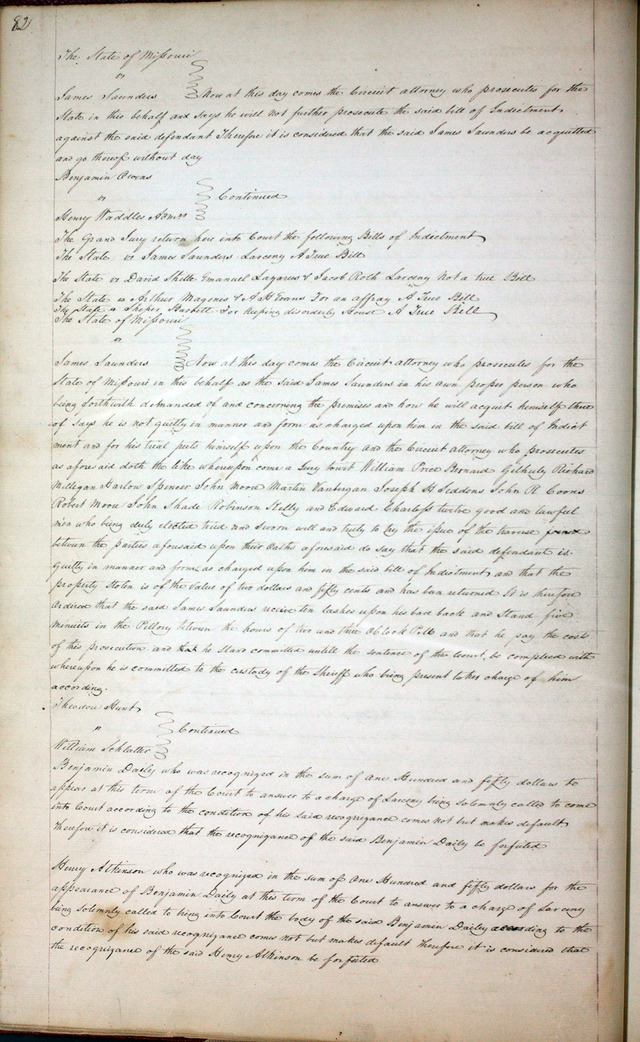 82
The State of Missouri
vs
James Saunders Now at this day comes the Circuit attorney who prosecutes for the
State in this behalf and says he will not further prosecute the said bill of Indictment
against the said defendant Therefore it is considered that the said James Saunders be acquitted
and go thereof without day
Benjamin Owens
vs Continued
Henry Waddles Admr
The Grand Jury return here into Court the following Bills of Indictment
The State vs James Saunders Larceny A True Bill
The State vs David Emanuel Lazarus & Jacob Roth Larceny Not a true Bill
The State vs Arthur Magenis & A H Evans For an affray A True Bill
The State vs For keeping disorderly House A True Bill
The State of Missouri
vs
James Saunders Now at this day comes the Circuit attorney who prosecutes for the
State of Missouri in this behalf as the said James Saunders in his own proper person who
being forthwith demanded of and concerning the premises and how he will acquit himself there
of Says he is not guilty in manner and form as charged upon him in the said bill of Indict
ment and for his trial puts himself upon the Country and the Circuit attorney who prosecutes
as aforesaid doth the like whereupon come a Jury to wit William Price Bernard Gilhuly Richard
Milligan Harlow Spencer John Moore Martin Joseph H Seddens John R
Robert Moore John Shade Robinson and Edward Charless twelve good and lawful
men who being duly elected tried and sworn well and truly to try the issue of the traverse joined
between the parties aforesaid upon their Oaths aforesaid do say that the said defendant is
Guilty in manner and form as charged upon him in the said bill of Indictment and that the
property stolen is of the value of two dollars and fifty cents and has been returned It is therefore
Ordered that the said James Saunders receive ten lashes upon his bad back and Stand five
minuits in the Pillory between the hours of two and three Oclock and that he pay the costs
of this prosecution and that he stand committed untill the sentence of the Court be complied with
whereupon he is committed to the custody of the Sheriff who being present takes charge of him
according.
Theodore Hunt
vs Continued
William Schlatter
Benjamin Daily who was recognized in the sum of One Hundred and fifty dollars to
appear at this term of the Court to answer to a charge of Larceny being solemnly called to come
into Court according to the condition of his said recognizance comes not but makes default
Therefore it is considered that the recognizance of the said Benjamin Daily be forfeited
Henry Atkinson who was recognized in the sum of One Hundred and fifty dollars for the
appearance of Benjamin Daily at this term of the Court to answer to a charge of Larceny
being solemnly called to bring into Court the body of the said Benjamin Dailey according to the
condition of his said recognizance comes not but makes default Therefore it is considered that
the recognizance of the said Henry Atkinson be forfeited